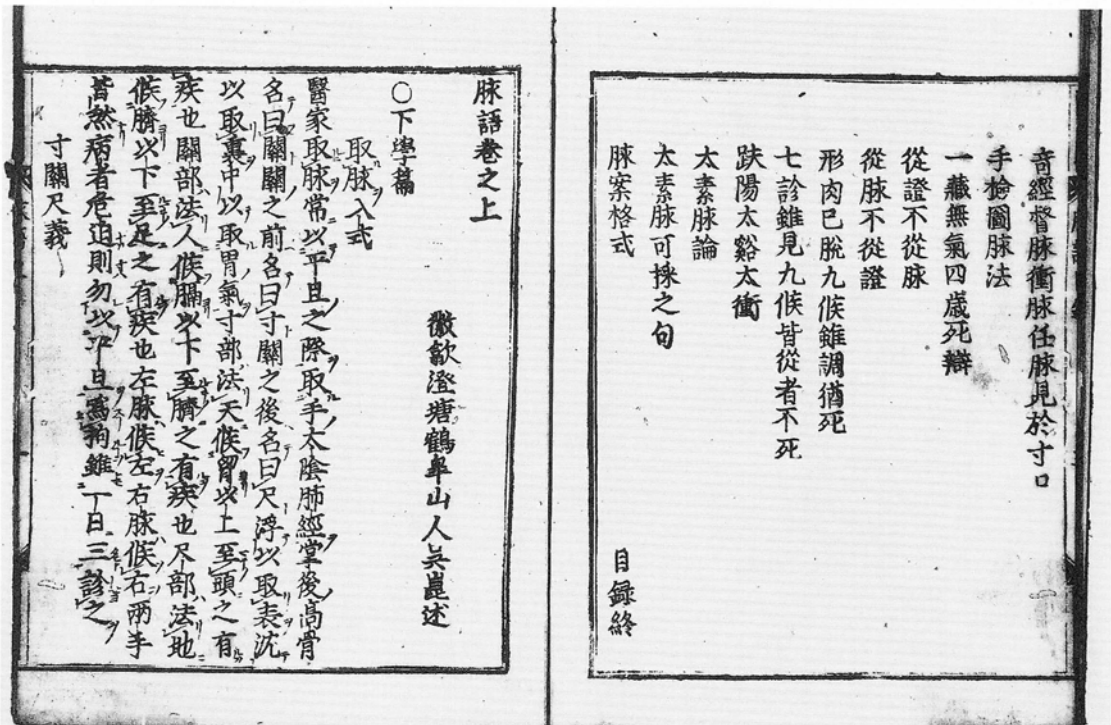 奇經督脉衝脉任脉見於寸口
手檢圖脉法
一藏無氣四歲死辯
從證不從脉
從脉不從證
形肉已脫九候雖調猶死
七診雖見九候皆從者不死
趺陽太谿太衝
太素脉論
太素脉可採之句
脉案格式
目録終
脉語卷之上
徽歙澄塘鶴皐山人吳崑述
○下學篇
取脉入式
醫家取脉常以平旦之際取手太陰肺經掌後高骨
名曰關關之前名曰寸關之後名曰尺浮以取表沈
以取裏中以取胃氣寸部法天候胷以上至頭之有
疾也關部法人候膈以下至臍之有疾也尺部法地
候臍以下至足之有疾也左脉候左右脉候右兩手
皆然病者危迫則勿以平旦爲拘雖一日三診之
寸關尺義